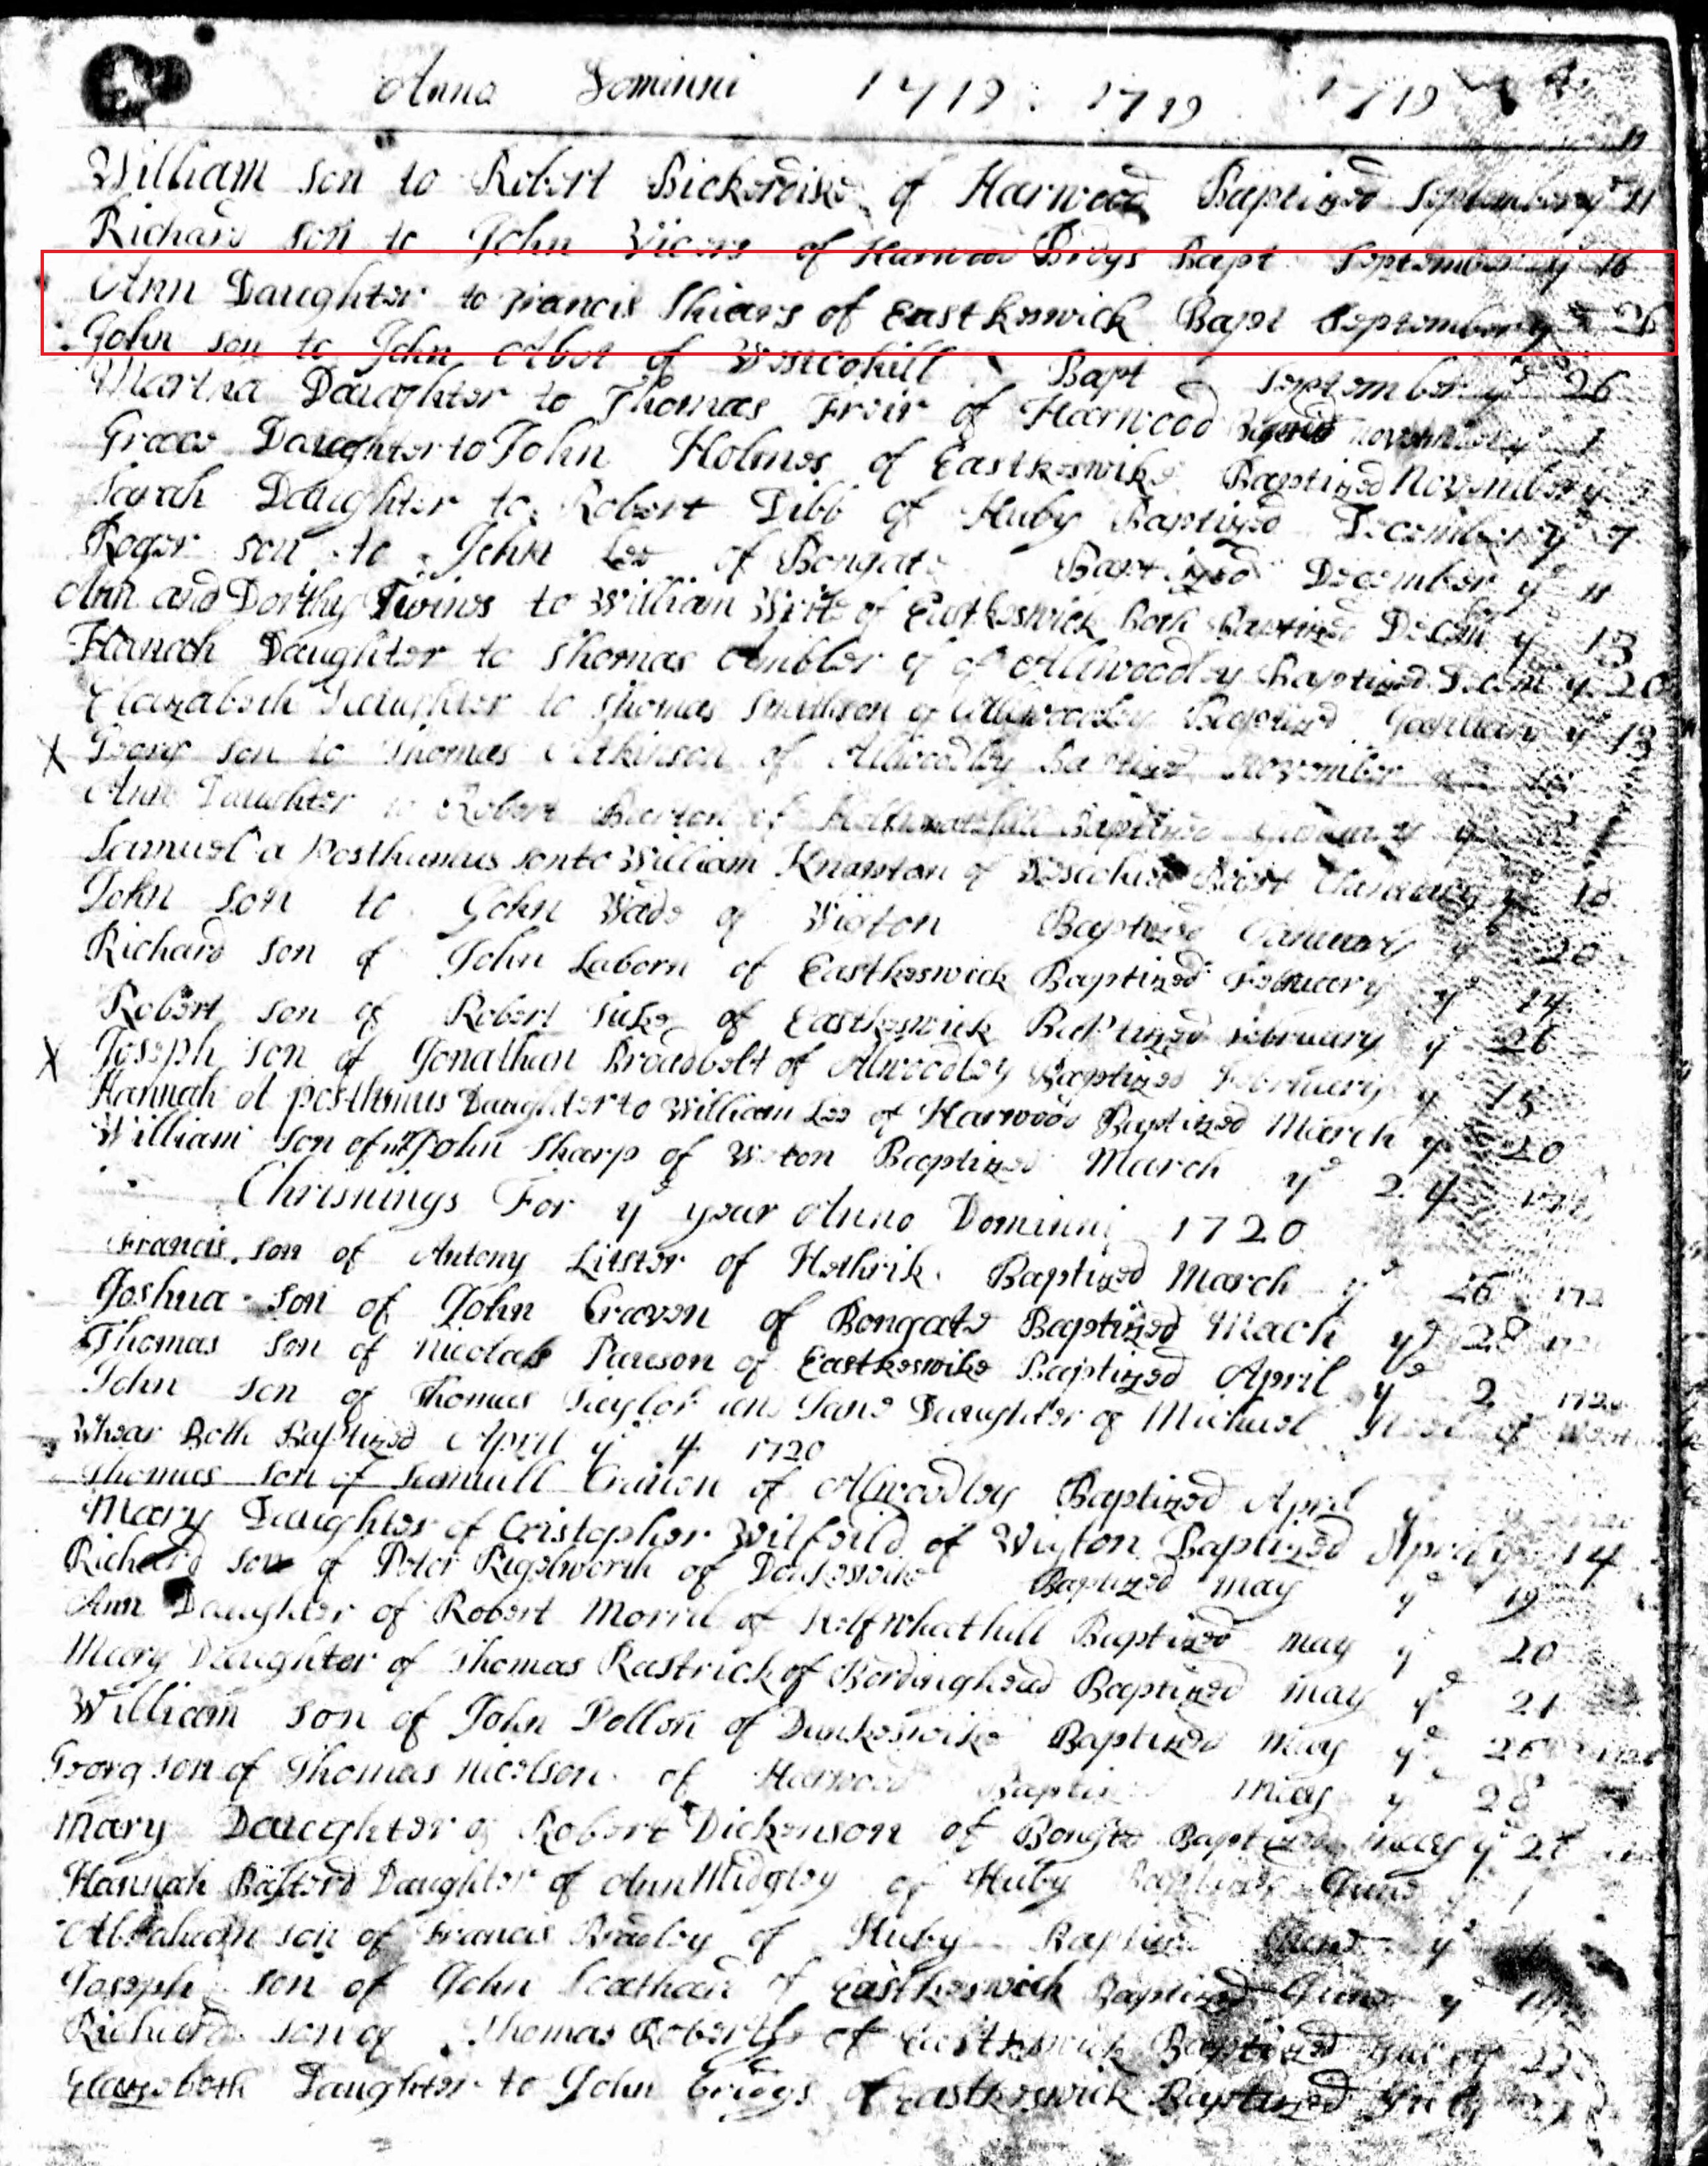 Anna Dominni 1719 : 1719 1719
William son to Robert Bickerdike of Harwood Baptized September ye 11
Richard son to John Vicars of Harwood Brigs Bapt September ye 16
Ann Daughter to Francis Shiars of Eastkeswick Bapt September ye
John son to John Abot of Westcohill Bapt September ye 26
Martha Daughter to Thomas Freir of Harwood November ye 1
Grace Daughter to John Holmes of Eastkeswike Baptized November ye
Sarah Daughter to Robert Dibb of Huby Baptized December ye 7
Roger son to John Lee of Bongate Baptized December ye 11
Ann and Dorthy Twines to William Write of Eastkeswick Both Baptized Decem ye 13
Hanah Daughter to Thomas Ambler of of Allwoodley Baptized Decem ye 20
Elezabeth Daughter to Thomas Smithson of Allwoodley Baptized ye 13
X Georg son to Thomas Atkinson of Allwoodley Baptized November
Ann Daughter to Robert Burton of Baptized ye
Samuel a Posthumus son to William Knowton of Bapt January ye 18
John son to John Wade of Wigton Baptized January ye 20
Richard son of John Laborn of Eastkeswick Baptized February ye 14
Robert son of Robert of Eastkeswick Baptized February ye 26
X Joseph son of Jonathan Broadbelt of Alwoodley Baptized February ye 15
Hannah A posthmus Daughter to William Lee of Harwood Baptized March ye 20
William son of John Sharp of Baptized March ye 24
Chrisnings For ye year Anno Dominni 1720
Francis son of Antony Litster of Hethrik Baptized March ye 26 172
Joshua son of John Craven of Bongate Baptized Mach ye 28
Thomas son of Nicolas Pawson of Eastkeswike Baptized April ye 2 1720
John son of Thomas Taylor and Jane Daughter of Michael of
Whear Both Baptized April ye 4 1720
Thomas son of Samuill of Alwoodley Baptized April ye
Mary Daughter of Cristopher Wilfeild of Wigton Baptized April ye 14
Richard son of Peter Rigelsworth of Dunkeswike Baptized may ye 19
Ann Daughter of Robert Morril of Helfwhathill Baptized may ye 20
Mary Daughter of Thomas Rastrick of Bordinghead Baptized may ye 21
William son of John Pollon of Dunkeswike Baptized may ye
Georg son of Thomas nicolson of Harwood Baptiz may ye 28
Mary Daughter of Robert Dickenson of Bongte Baptized may ye
Hannah Bastord Daughter of Ann Midgley of Huby Baptized June ye 1
Abraham son of Francis Bradley of Huby Baptized June ye
Joseph son of John of Eastkeswick Baptized June ye
Richard son of Thomas Roberths of Eastkeswick Baptized
Elezebeth Daughter to John Briggs of Eastkeswick Baptized